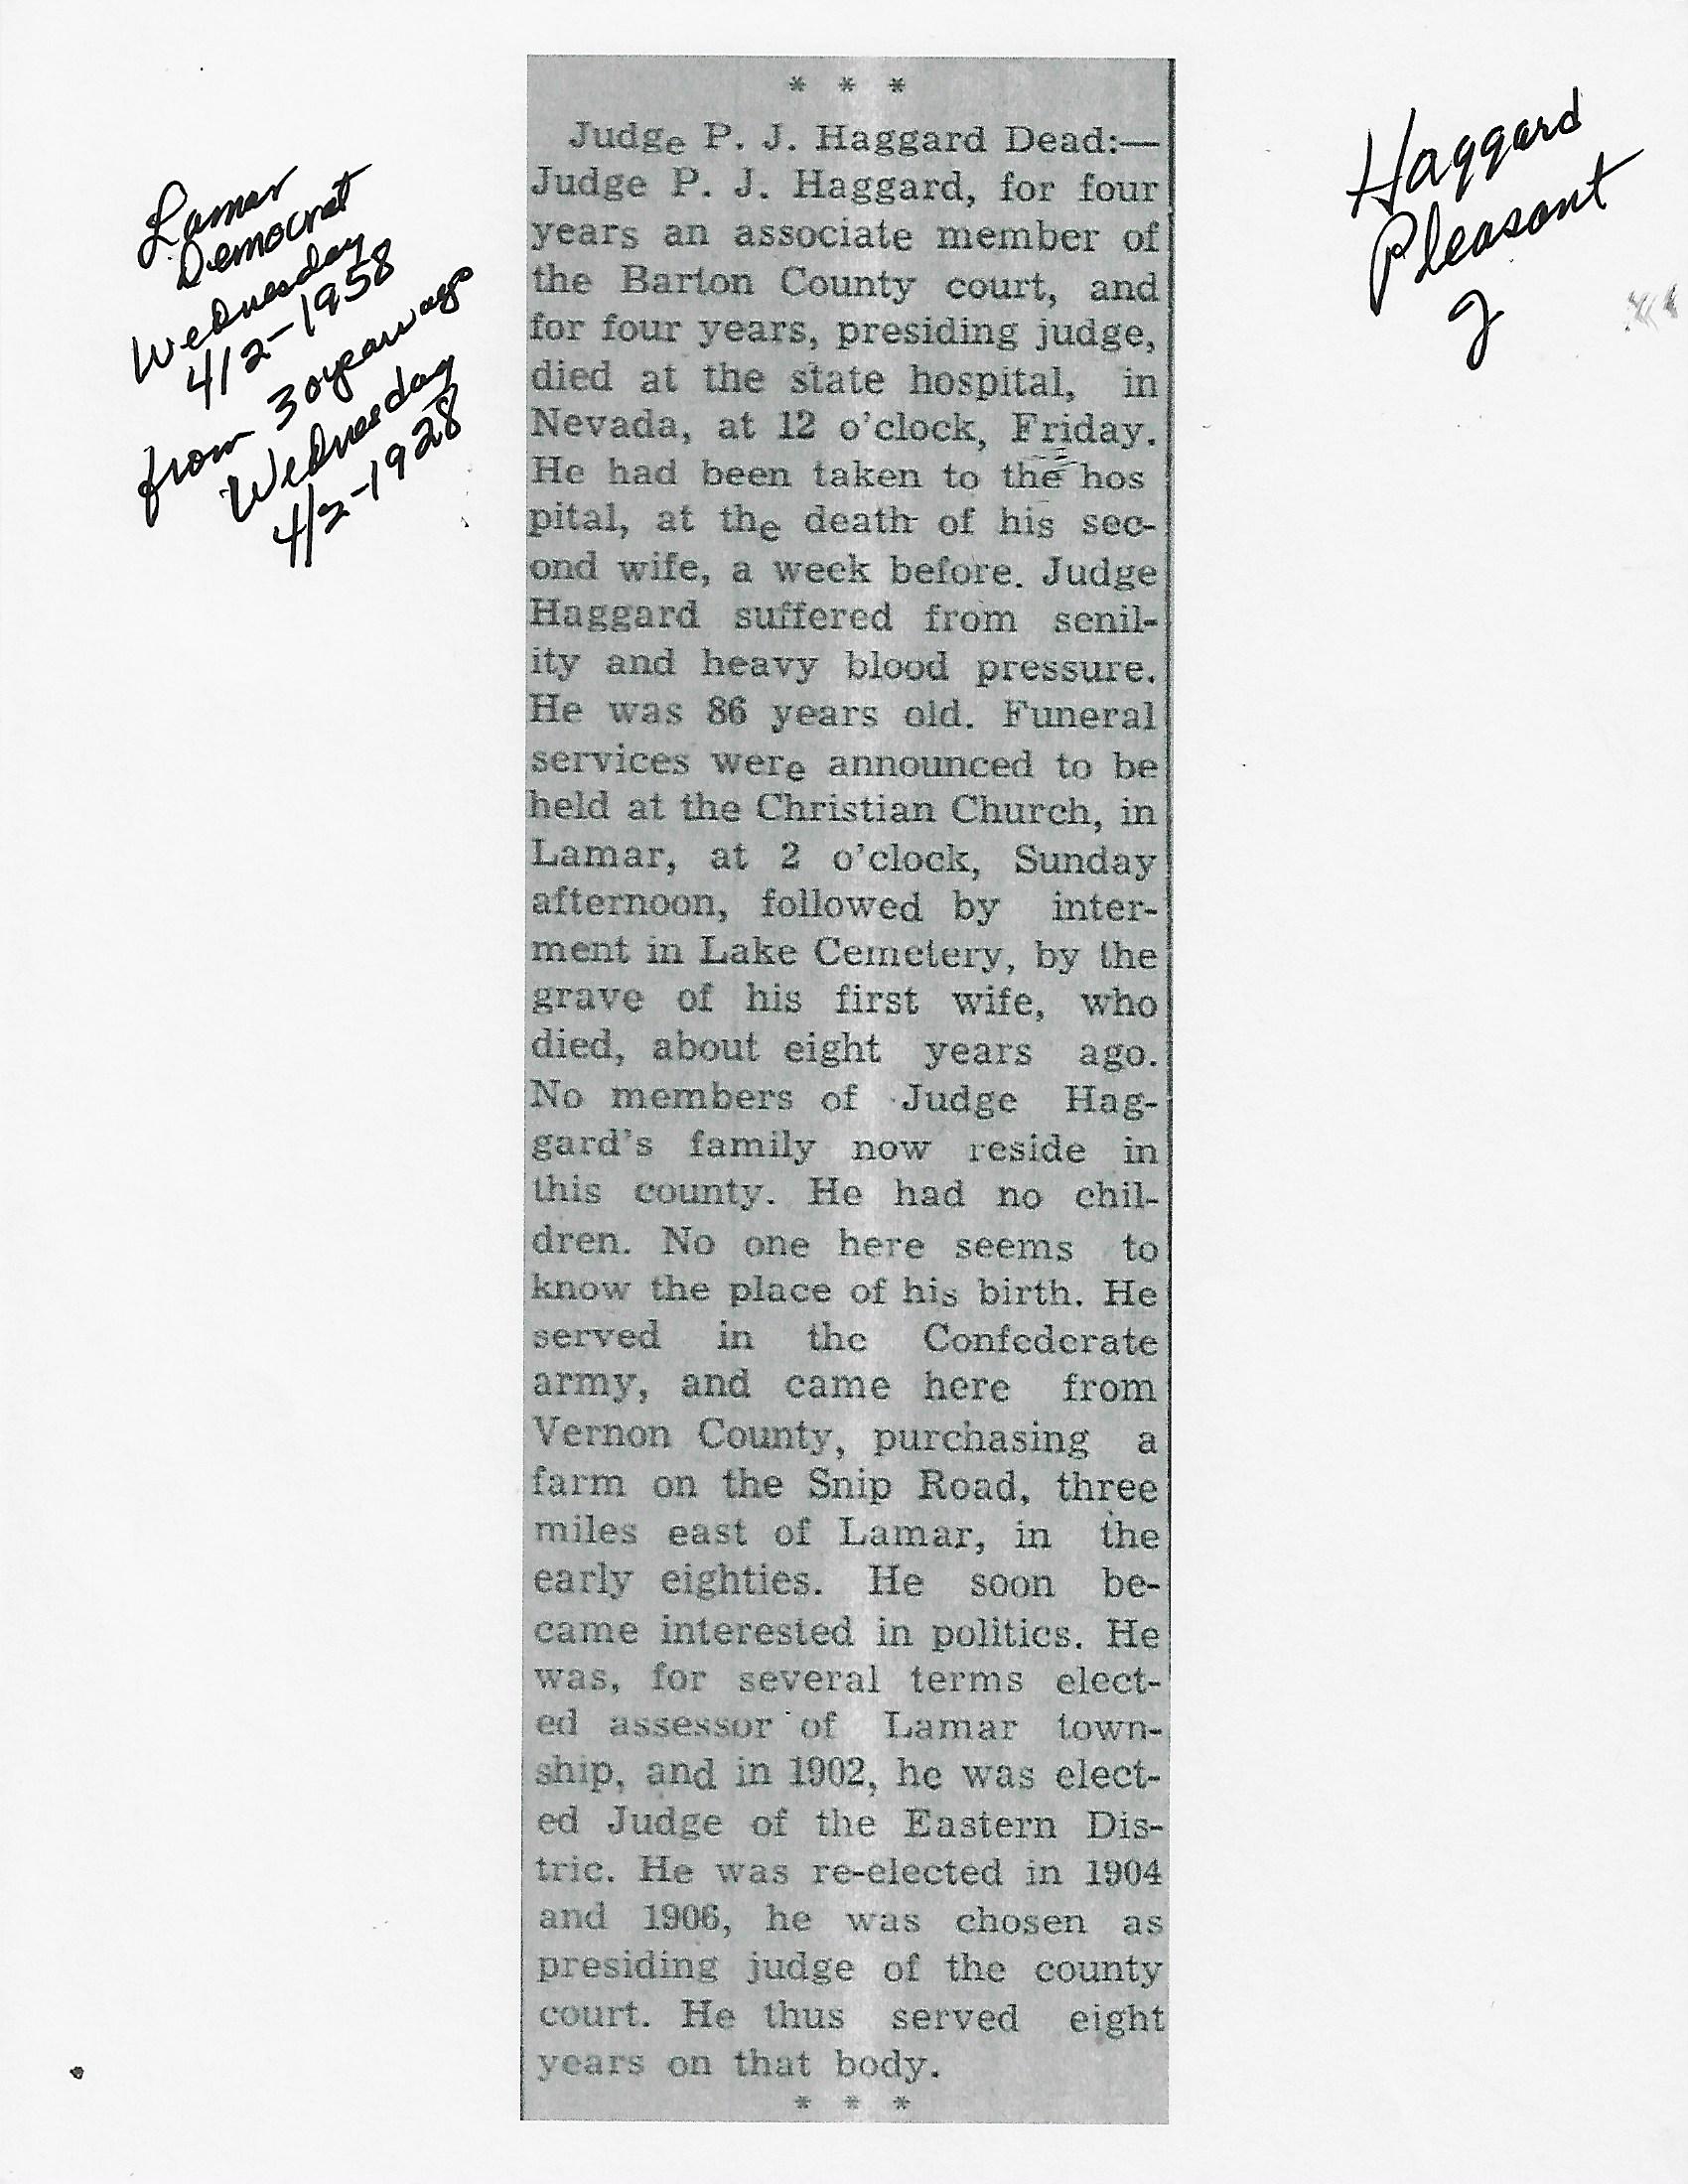 Lamar
Democrat
Wednesday
4/2-1958
from 30 years ago
Wednesday
4/2-1928
Haggard
Pleasant
J
* * *
Judge P. J. Haggard Dead:—
Judge P. J. Haggard, for four
years an associate member of
the Barton County court, and
for four years, presiding judge,
died at the state hospital, in
Nevada, at 12 o'clock, Friday.
He had been taken to the hos
pital, at the death of his sec-
ond wife, a week before. Judge
Haggard suffered from senil-
ity and heavy blood pressure.
He was 86 years old. Funeral
services were announced to be
held at the Christian Church, in
Lamar, at 2 o'clock, Sunday
afternoon, followed by inter-
ment in Lake Cemetery, by the
grave of his first wife, who
died, about eight years ago.
No members of Judge Hag-
gard's family now reside in
this county. He had no chil-
dren. No one here seems to
know the place of his birth. He
served in the Confederate
army, and came here from
Vernon County, purchasing a
farm on the Snip Road, three
miles east of Lamar, in the
early eighties. He soon be-
came interested in politics. He
was, for several terms elect-
ed assessor of Lamar town-
ship, and in 1902, he was elect-
ed Judge of the Eastern Dis-
tric. He was re-elected in 1904
and 1906, he was chosen as
presiding judge of the county
court. He thus served eight
years on that body.
* * *